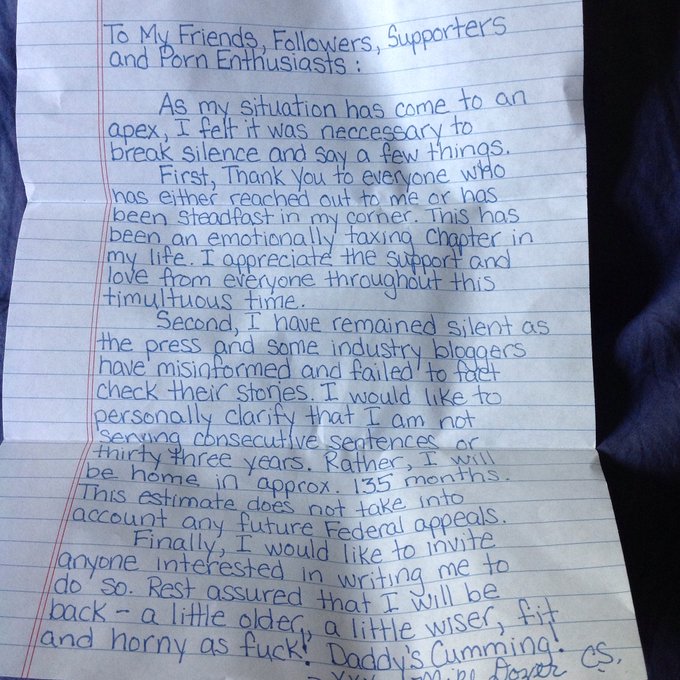 To My Friends, Followers, Supporters
and Porn Enthusiasts :
As my situation has come to an
apex, I felt it was neccessary to
break silence and say a few things.
First, Thank You to everyone who
has either reached out to me or has
been steadfast in my corner. This has
been an emotionally taxing chapter in
my life. I appreciate the support and
love from everyone throughout this
timultuous time.
Second, I have remained silent as
the press and some industry bloggers
have misinformed and failed to fact
check their stories. I would like to
personally clarify that I am not
serving consecutive sentences or
thirty three years. Rather, I will
be home in approx. 135 months.
This estimate does not take into
account any future Federal appeals.
Finally, I would like to invite
anyone interested in writing me to
do so. Rest assured that I will be
back - a little older, a little wiser, fit
and horny as fuck! Daddy's Cumming!